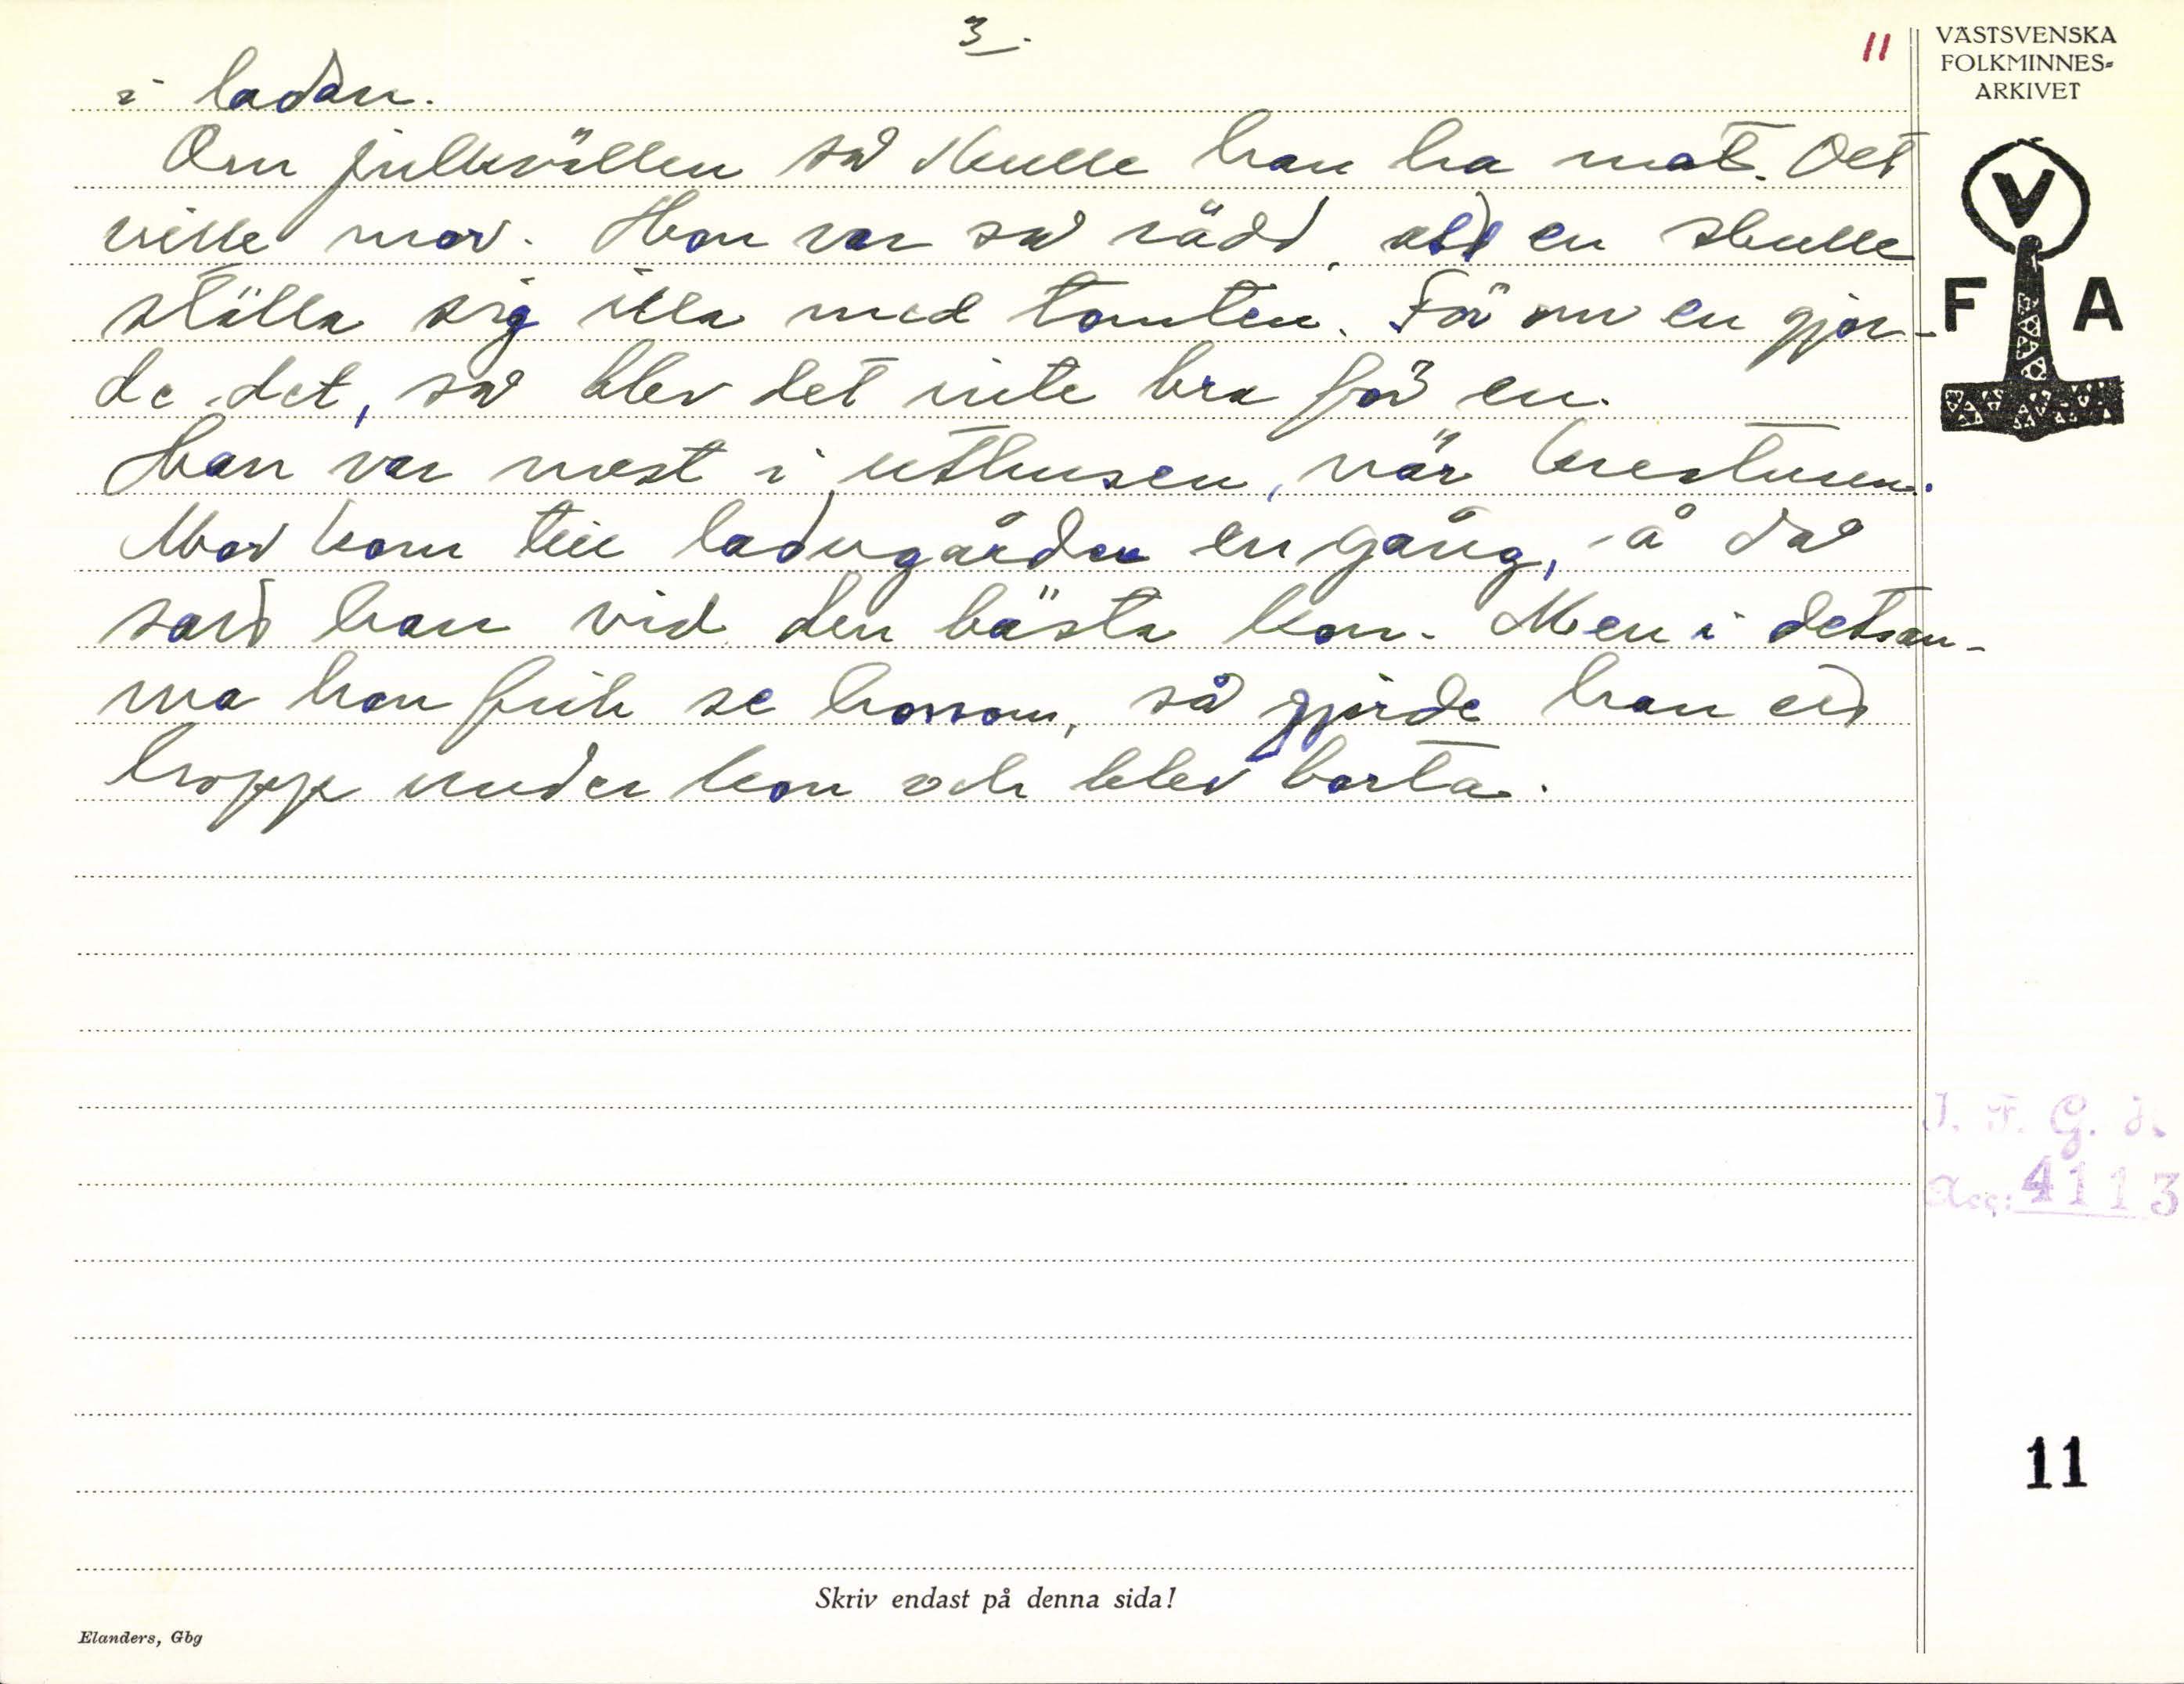 3.
11
VÄSTSVENSKA
FOLKMINNES-
ARKIVET
i ladan.
Om julkvällen så skulle han ha mat. Det
ville mor. Hon var så rädd, att en skulle
ställa sig illa med tomten. För om en gjor-
de det, så blev det inte bra för en.
Han var mest i uthusen, när kreaturen.
Mor kom till ladugården en gång, å då
sad han vid den bästa kon. Men i detsam-
ma hon fick se honom, så gjorde han ett
hopp under kon och blev borta.
V
F A
I. F. G. H.
Acc: 4113
11
Skriv endast på denna sida!
Elanders, Gbg